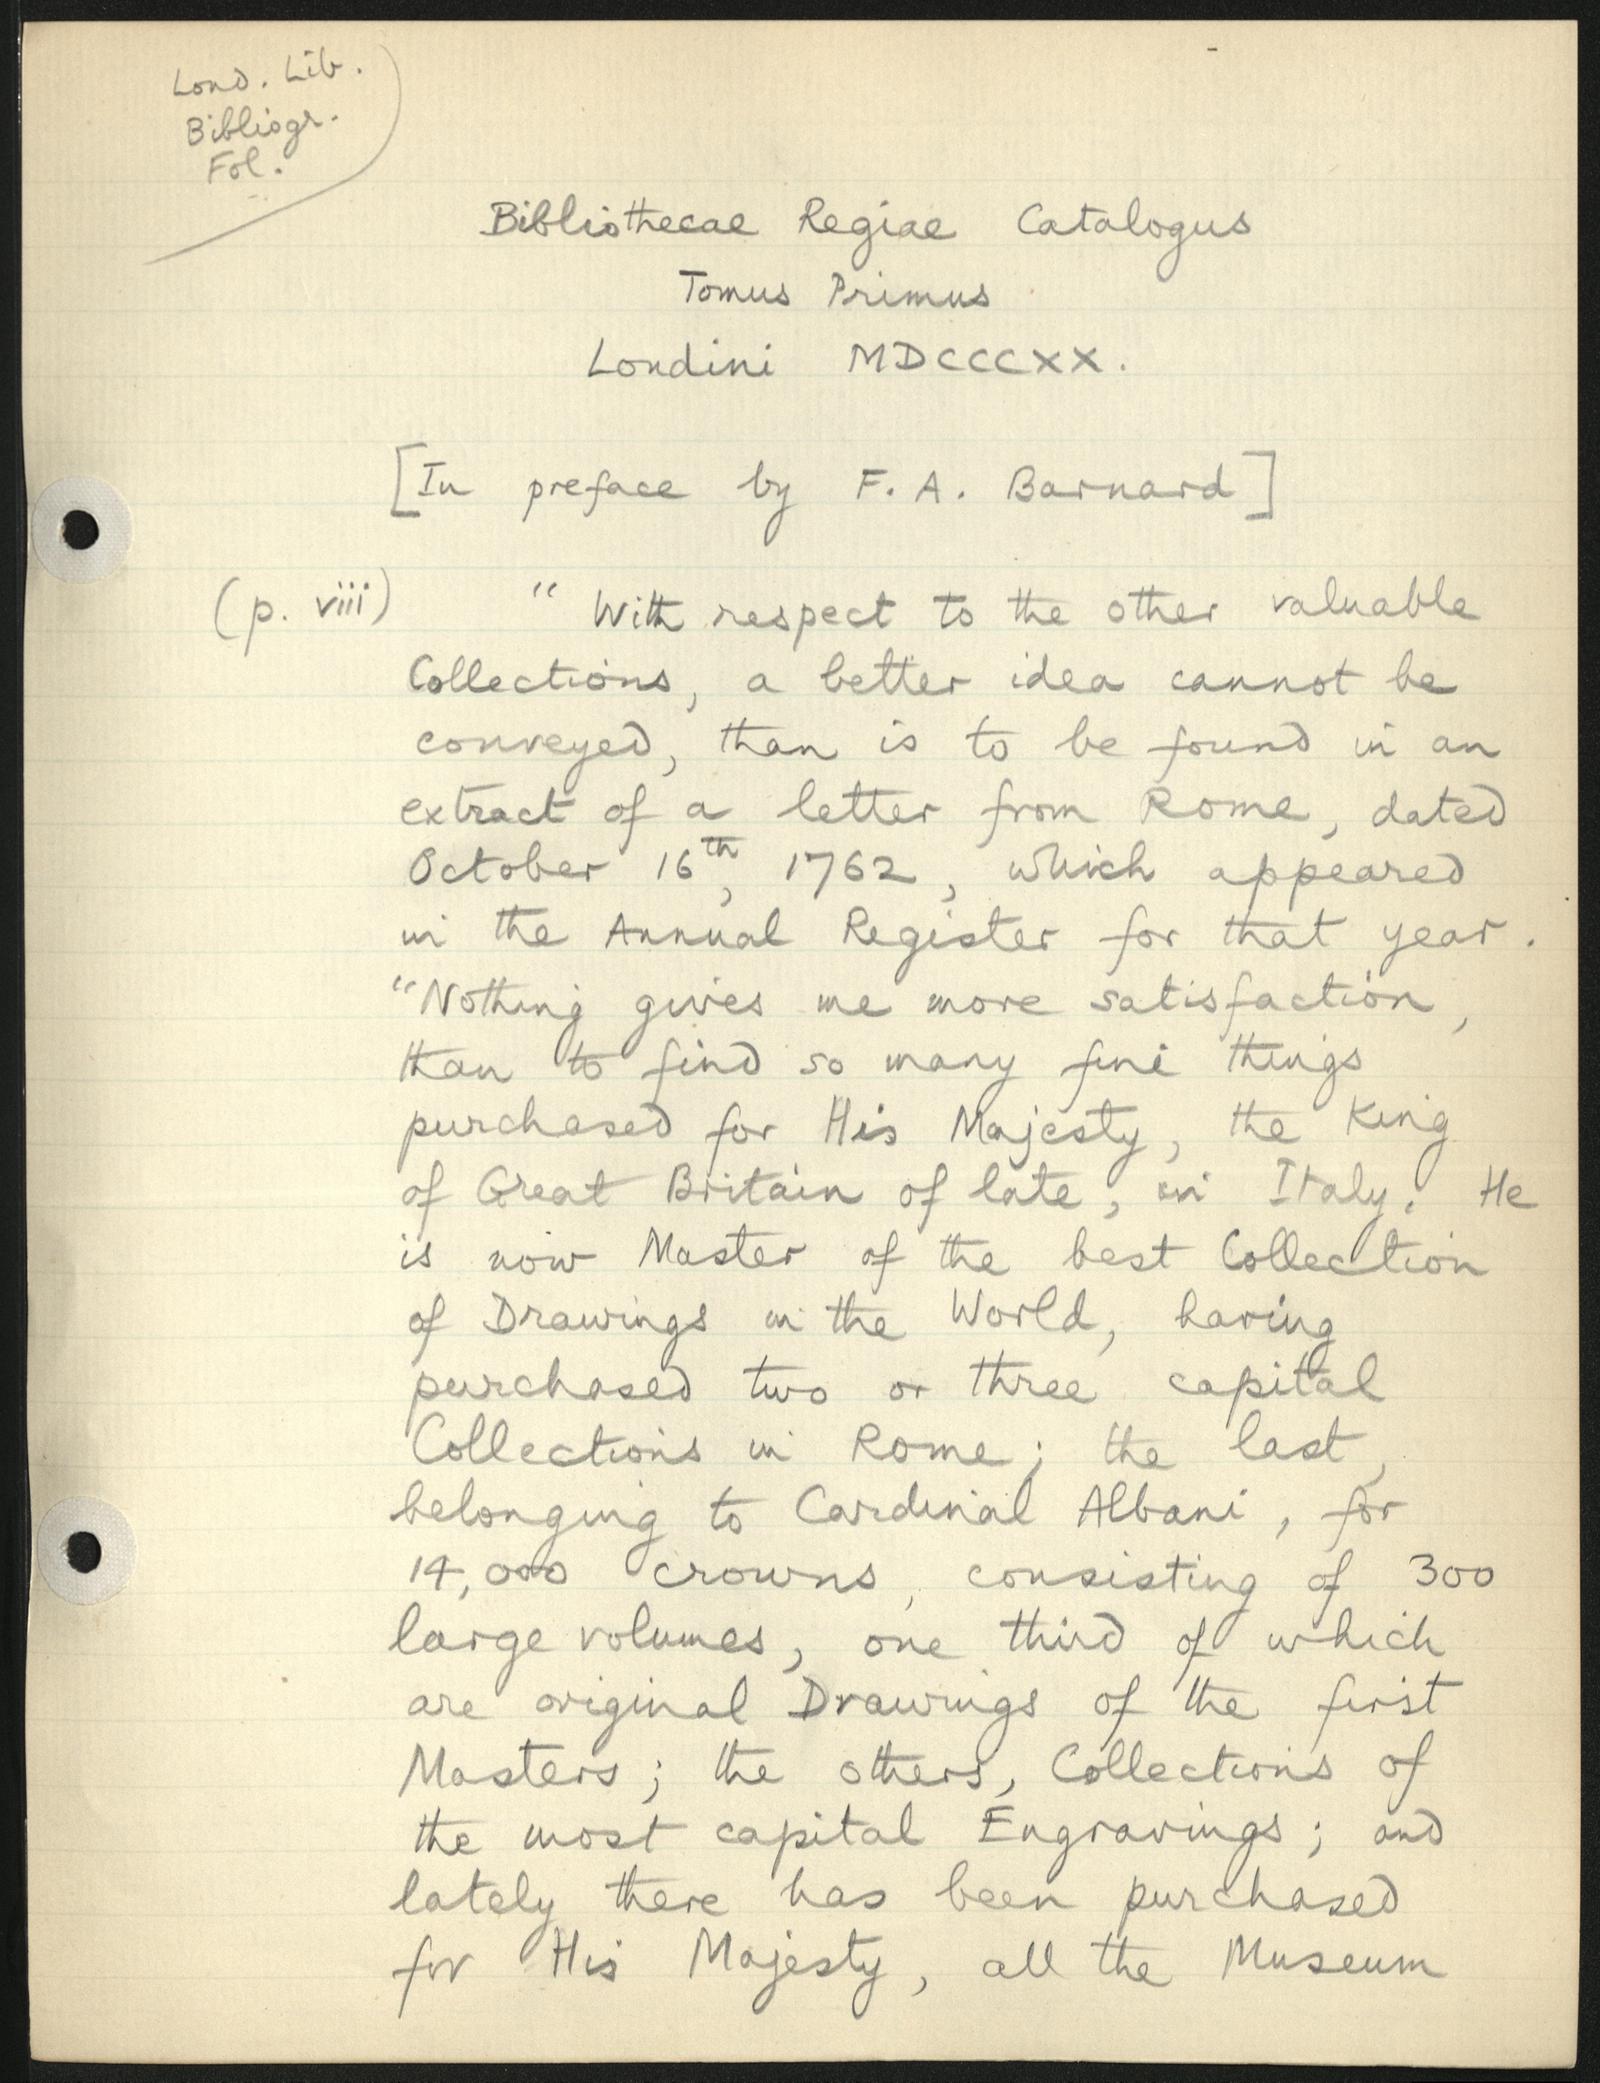 Lond. Lib.
Bibliogr.
Fol.
Bibliothecae Regiae Catalogus
Tomus Primus
Londini MDCCCXX.
[In preface by F. A. Barnard]
(p. viii) "With respect to the other valuable
Collections, a better idea cannot be
conveyed, than is to be found in an
extract of a letter from Rome, dated
October 16th, 1762, which appeared
in the Annual Register for that year.
"Nothing gives me more satisfaction,
than to find so many fine things
purchased for His Majesty, the King
of Great Britain of late, in Italy. He
is now Master of the best Collection
of Drawings in the World, having
purchased two or three capital
Collections in Rome; the last,
belonging to Cardinal Albani, for
14,000 crowns, consisting of 300
large volumes, one third of which
are original Drawings of the first
Masters; the others, Collections of
the most capital Engravings; and
lately there has been purchased
for His Majesty, all the Museum